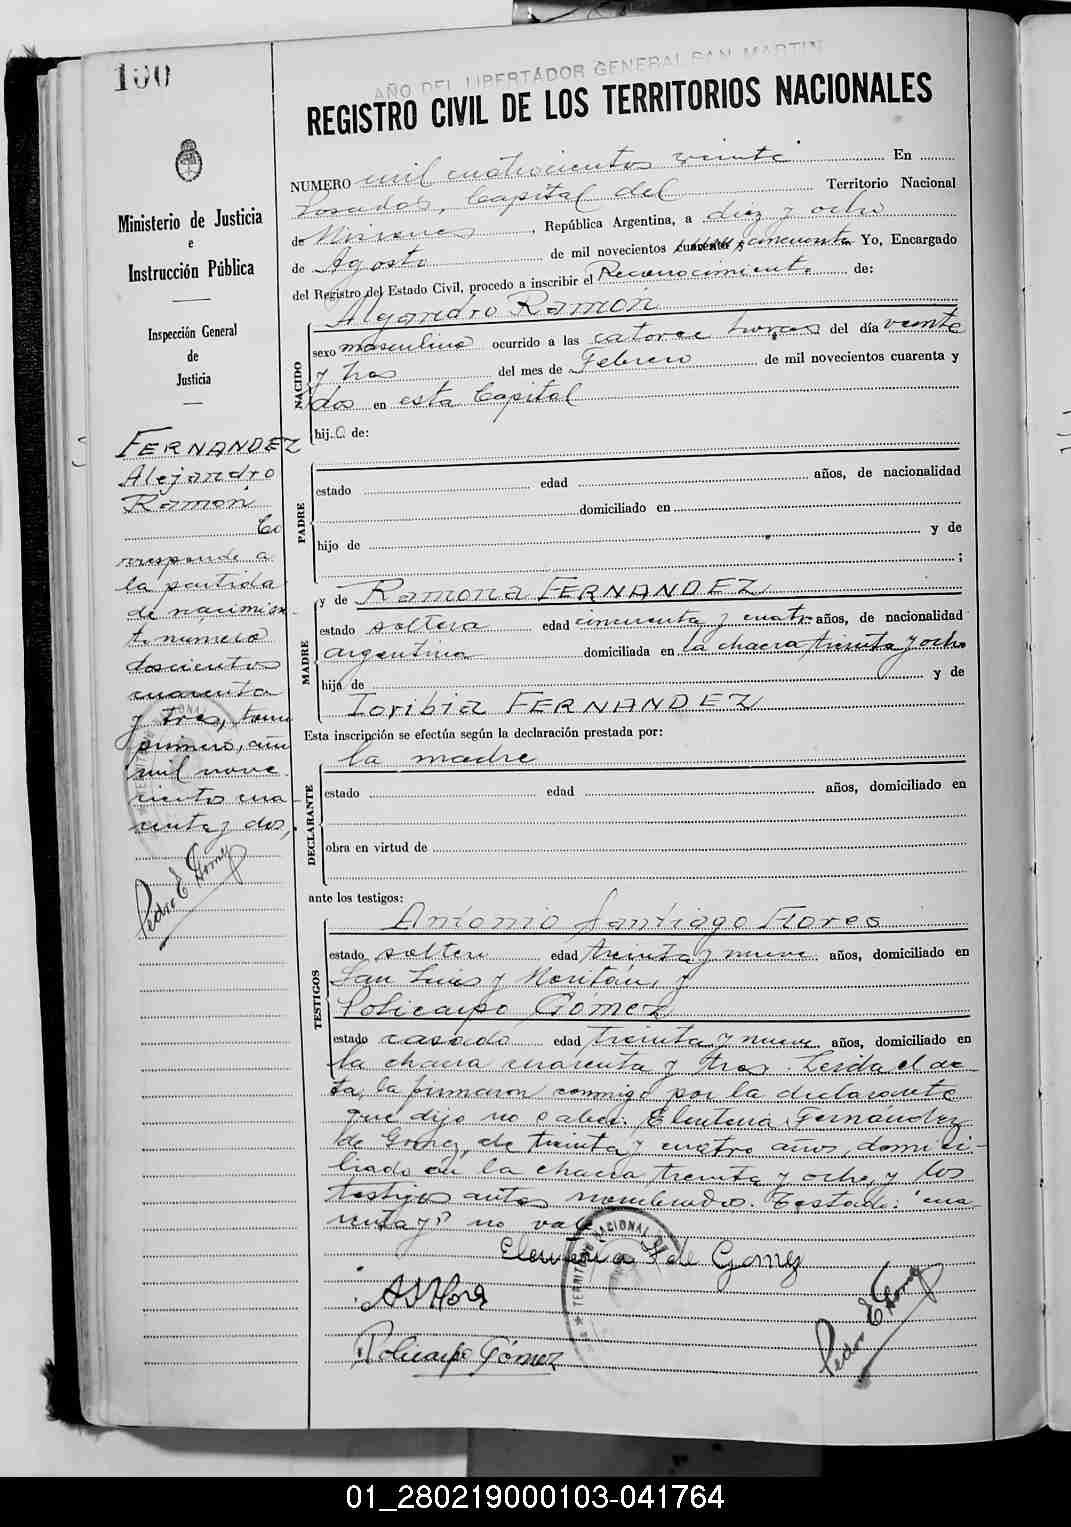 100
AÑO DEL LIBERTADOR GENERAL SAN MARTIN
REGISTRO CIVIL DE LOS TERRITORIOS NACIONALES
Ministerio de Justicia
e
Instrucción Pública
Inspección General
de
Justicia
FERNANDEZ
Alejandro
Ramón
Co
rresponde a
la partida
de nacimien-
to número
doscientos
cuarenta
y tres, tomo
primero, año
mil nove-
cientos cua-
renta y dos,
Pedro E Gomez
NUMERO mil cuatrocientos veinte En
Posadas, Capital del Territorio Nacional
de Misiones, República Argentina, a diez y ocho
de Agosto de mil novecientos cuarenta y cincuenta Yo, Encargado
del Registro del Estado Civil, procedo a inscribir el Reconocimiento de:
NACIDO
Alejandro Ramón
sexo masculino ocurrido a las catorce horas del día veinte
y tres del mes de Febrero de mil novecientos cuarenta y
dos en esta Capital
hijo de:
PADRE
estado edad años, de nacionalidad
domiciliado en
hijo de y de
;
MADRE
y de Ramona FERNANDEZ
estado soltera edad cincuenta y cuatro años, de nacionalidad
argentina domiciliada en la chacra treinta y ocho
hija de y de
Toribia FERNANDEZ
Esta inscripción se efectúa según la declaración prestada por:
DECLARANTE
la madre
estado edad años, domiciliado en
obra en virtud de
ante los testigos:
TESTIGOS
Antonio Santiago Flores
estado soltero edad treinta y nueve años, domiciliado en
San Luis y Moritán, y
Policarpo Gómez
estado casado edad treinta y nueve años, domiciliado en
la chacra cuarenta y tres. Leida el ac-
ta, la firmaron conmigo por la declarante
que dijo no saber Eleuteria Fernández
de Gomez, de treinta y cuatro años, domici-
liada en la chacra treinta y ocho y los
testigos antes nombrados. Testado: "cua-
renta y" no vale
Eleuteria F de Gomez
A S Flores
Policarpo Gómez
Pedro E Gomez
TERRITORIO NACIONAL
01_280219000103-041764